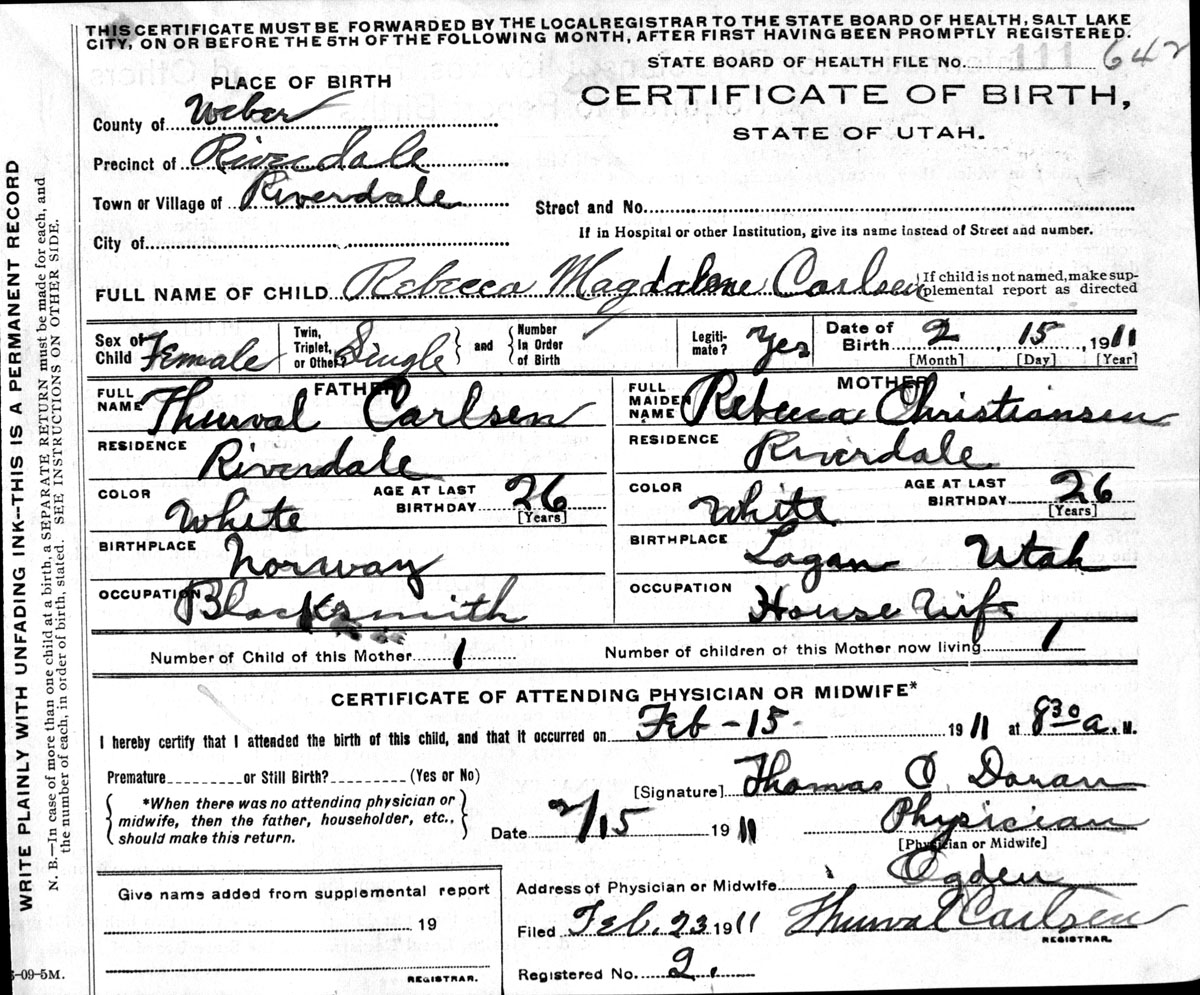 THIS CERTIFICATE MUST BE FORWARDED BY THE LOCAL REGISTRAR TO THE STATE BOARD OF HEALTH, SALT LAKE
CITY, ON OR BEFORE THE 5TH OF THE FOLLOWING MONTH, AFTER FIRST HAVING BEEN PROMPTLY REGISTERED.
STATE BOARD OF HEALTH FILE No. 111 642
PLACE OF BIRTH
CERTIFICATE OF BIRTH,
STATE OF UTAH.
County of Weber
Precinct of Riverdale
Town or Village of Riverdale
Street and No.
City of
If in Hospital or other Institution, give its name instead of Street and number.
FULL NAME OF CHILD Rebecca Magdalene Carlsen {If child is not named, make sup-
plemental report as directed
Sex of Child Female Twin, Triplet, or Other? Single } and { Number In Order of Birth Legiti-mate? Yes Date of Birth 2, 15, 1911
[Month] [Day] [Year]
FATHER MOTHER
FULL NAME Thurval Carlsen FULL MAIDEN NAME Rebecca Christiansen
RESIDENCE Riverdale RESIDENCE Riverdale
COLOR White AGE AT LAST BIRTHDAY 26 [Years] COLOR White AGE AT LAST BIRTHDAY 26 [Years]
BIRTHPLACE Norway BIRTHPLACE Logan Utah
OCCUPATION Blacksmith OCCUPATION House Wife
Number of Child of this Mother 1 Number of children of this Mother now living 1
CERTIFICATE OF ATTENDING PHYSICIAN OR MIDWIFE*
I hereby certify that I attended the birth of this child, and that it occurred on Feb - 15 - 1911 at 8 30 a. M.
Premature or Still Birth? (Yes or No)
[Signature] Thomas O. Doran
*When there was no attending physician or
midwife, then the father, householder, etc.,
should make this return.
Date 2/15 1911 Physician
[Physician or Midwife]
Address of Physician or Midwife Ogden
Give name added from supplemental report
19
REGISTRAR.
Filed Feb. 23 1911 Thurval Carlsen
REGISTRAR.
Registered No. 2.
-09-5M.
WRITE PLAINLY WITH UNFADING INK—THIS IS A PERMANENT RECORD
N. B.—In case of more than one child at a birth, a SEPARATE RETURN must be made for each, and
the number of each, in order of birth, stated. SEE INSTRUCTIONS ON OTHER SIDE.